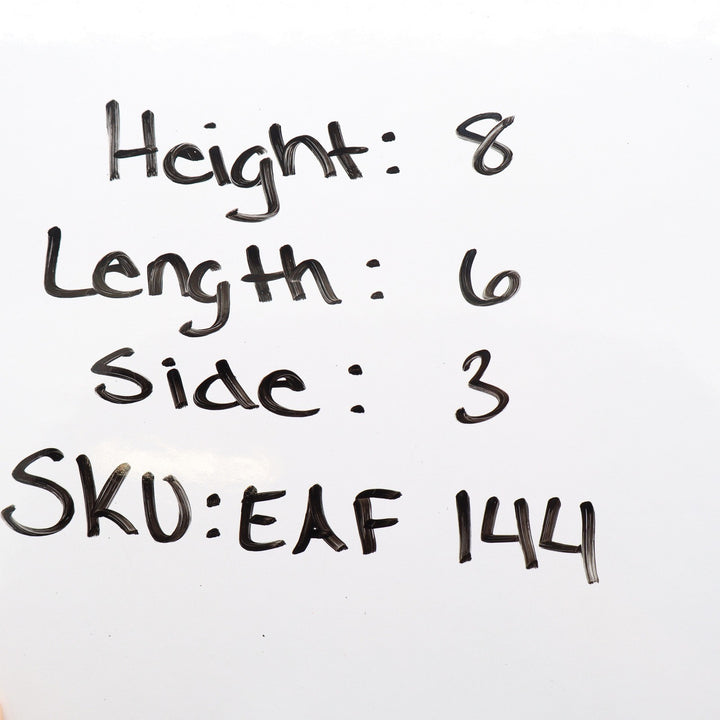 Height: 8
Length: 6
Side: 3
SKU: EAF 144